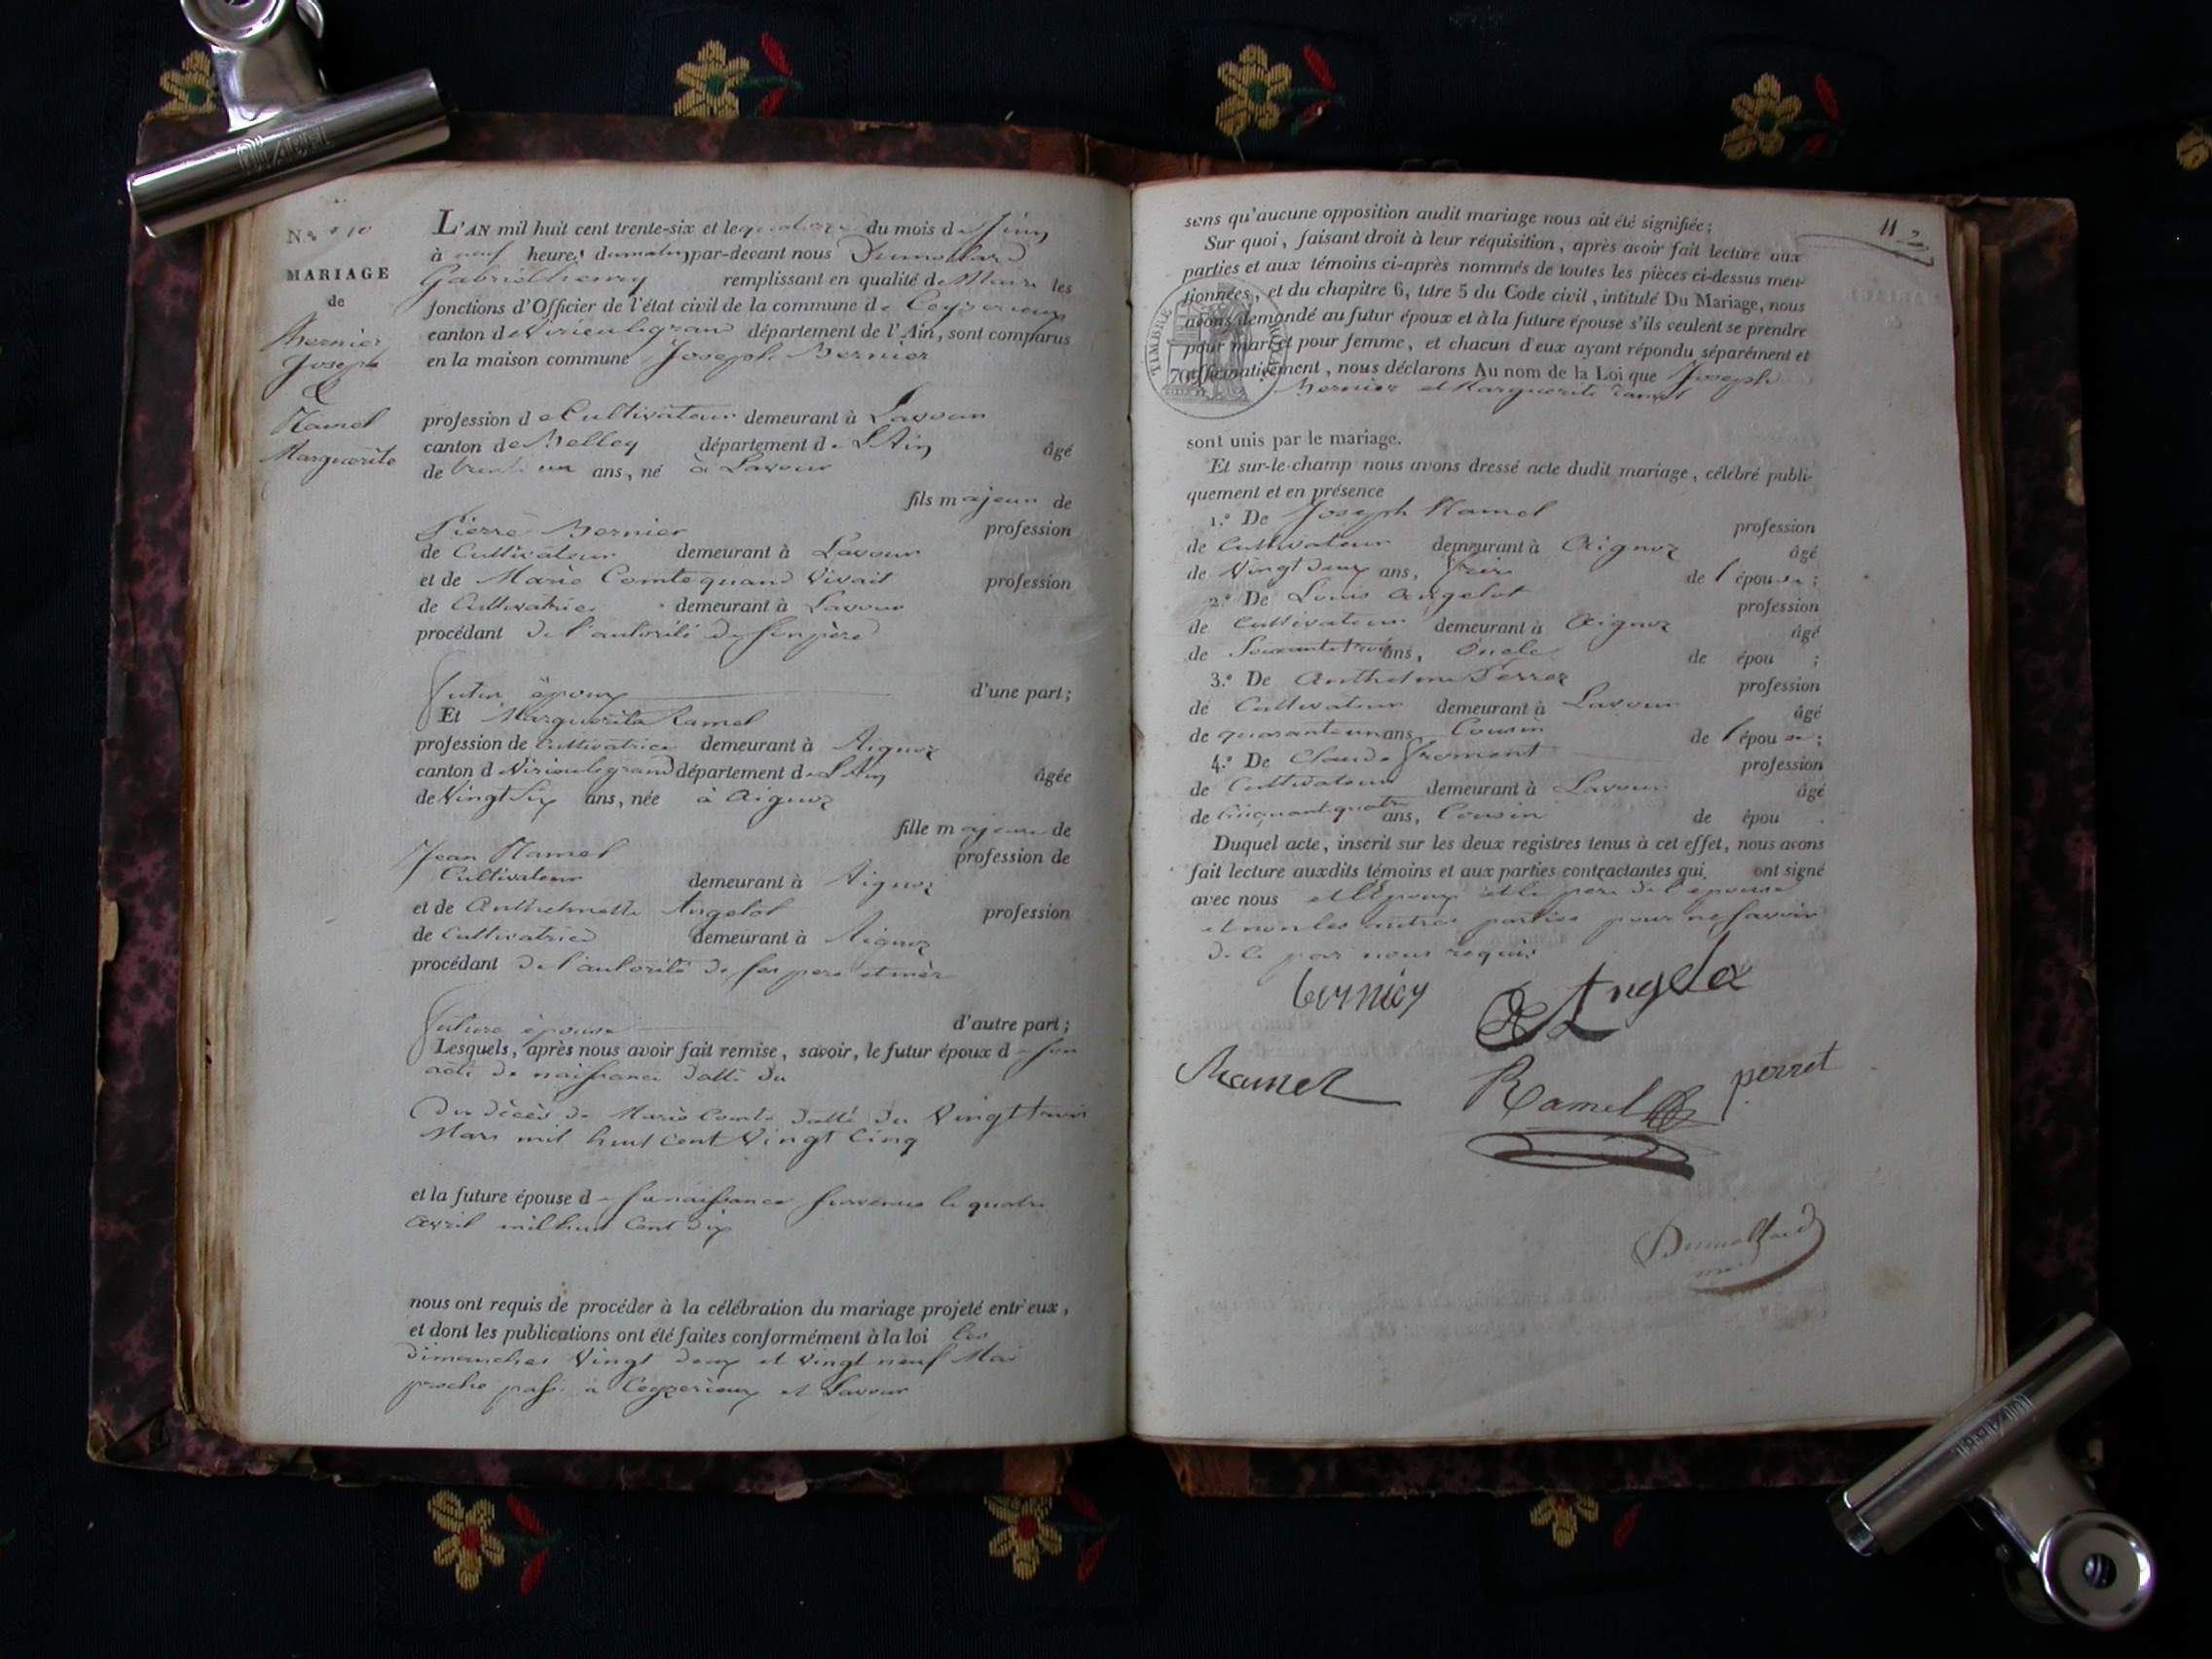 N.º 10
MARIAGE
de
Bernier
Joseph
&
Ramel
Marguerite
L'AN mil huit cent trente-six et le quatorze du mois de Juin
à neuf heures du matin par-devant nous Dumollard
Gabriel henry remplissant en qualité de Maire les
fonctions d'Officier de l'état civil de la commune de Ceyzerieux
canton de Virieulegrand département de l'Ain, sont comparus
en la maison commune Joseph Bernier
profession de Cultivateur demeurant à Lavour
canton de Belley département de L'Ain âgé
de trente un ans, né à Lavour
fils majeur de
Pierre Bernier profession
de Cultivateur demeurant à Lavour
et de Marie Comte quand vivait profession
de Cultivatrice demeurant à Lavour
procédant de l'autorité de son père
futur époux d'une part;
Et Marguerite Ramel
profession de Cultivatrice demeurant à Aignoz
canton de Virieulegrand département de L'Ain âgée
de Vingt Six ans, née à Aignoz
fille majeure de
Jean Ramel profession de
Cultivateur demeurant à Aignoz
et de Anthelmette Angelot profession
de Cultivatrice demeurant à Aignoz
procédant de l'autorité de ses pere et mère
future épouse d'autre part;
Lesquels, après nous avoir fait remise, savoir, le futur époux de son
acte de naissance datté du
Du décès de Marie Comte datté du Vingt trois
Mars mil huit cent Vingt Cinq
et la future épouse de sa naissance survenue le quatre
avril mil huit Cent dix
nous ont requis de procéder à la célébration du mariage projeté entr'eux,
et dont les publications ont été faites conformément à la loi les
dimanches Vingt deux et vingt neuf Mai
proche passé à Ceyzerieux et Lavour
11
sens qu'aucune opposition audit mariage nous ait été signifiée;
Sur quoi, faisant droit à leur réquisition, après avoir fait lecture aux
parties et aux témoins ci-après nommés de toutes les pièces ci-dessus men-
tionnées, et du chapitre 6, titre 5 du Code civil, intitulé Du Mariage, nous
avons demandé au futur époux et à la future épouse s'ils veulent se prendre
pour mari et pour femme, et chacun d'eux ayant répondu séparément et
affirmativement, nous déclarons Au nom de la Loi que Joseph
Bernier et Marguerite Ramel
TIMBRE ROYAL
70
sont unis par le mariage.
Et sur-le-champ nous avons dressé acte dudit mariage, célébré publi-
quement et en présence
1.º De Joseph Ramel profession
de Cultivateur demeurant à Aignoz âgé
de Vingt deux ans, frère de l'épouse;
2.º De Louis Angelot profession
de Cultivateur demeurant à Aignoz âgé
de Soixante trois ans, Oncle de épou ;
3.º De Anthelme Perret profession
de Cultivateur demeurant à Lavour âgé
de quarante un ans, Cousin de l'épou ;
4.º De Claude froment profession
de Cultivateur demeurant à Lavour âgé
de Cinquant quatre ans, Cousin de épou .
Duquel acte, inscrit sur les deux registres tenus à cet effet, nous avons
fait lecture auxdits témoins et aux parties contractantes qui ont signé
avec nous et l'Epoux et le pere de l'epouse
et non les autres parties pour ne savoir
de ce par nous requis
bernier Angelot
Ramel Ramel perret
Dumollard